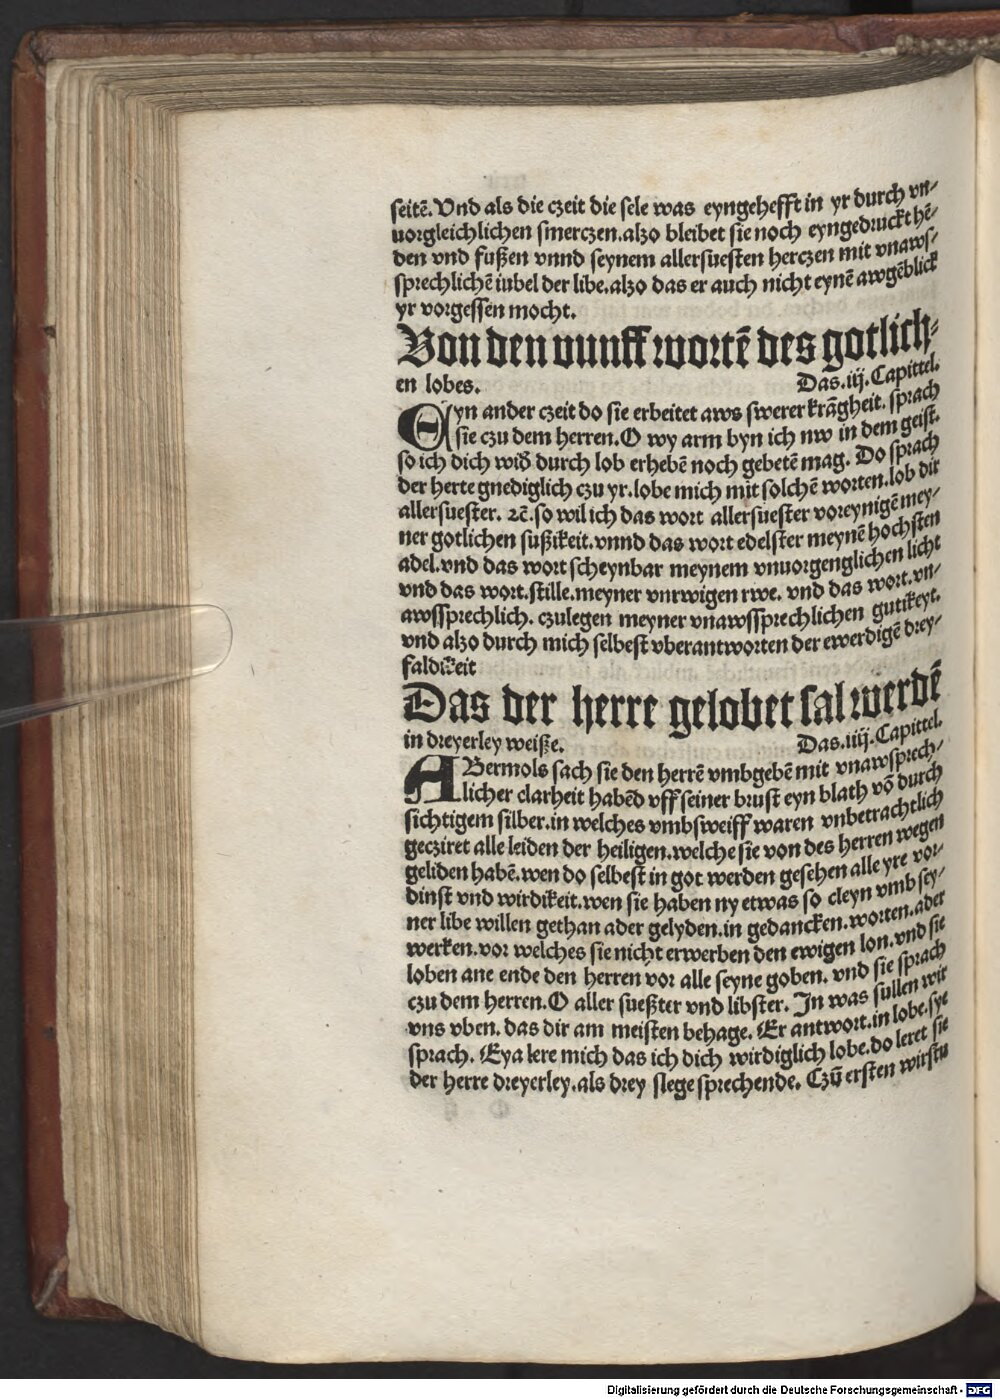 seitē. Vnd als die czeit die sele was eyngehefft in yr durch vn-
uorgleichlichen smerczen. alzo bleibet sie noch eyngedruckt hē-
den vnd fußen vnnd seynem allersuesten herczen mit vnaws-
sprechlichē iubel der libe. alzo das er auch nicht eynē awgēblick
yr vorgessen mocht.
Von den vunff wortē des gotlich-
en lobes. Das .iij. Capittel.
Eyn ander czeit do sie erbeitet aws swerer krāgheit. sprach
sie czu dem herren. O wy arm byn ich nw in dem geist.
so ich dich wid durch lob erhebē noch gebetē mag. Do sprach
der herre gnediglich czu yr. lobe mich mit solchē worten. lob dir
allersuester. ꝛc̄. so wil ich das wort allersuester voreynigē mey-
ner gotlichen sußikeit. vnnd das wort edelster meynē hochsten
adel. vnd das wort scheynbar meynem vnuorgenglichen licht
vnd das wort. stille. meyner vnrwigen rwe. vnd das wort. vn-
awssprechlich. czulegen meyner vnawssprechlichen gutikeyt.
vnd alzo durch mich selbest vberantworten der ewerdigē drey-
faldikeit
Das der herre gelobet sal werdē
in dreyerley weiße. Das .iiij. Capittel.
ABermols sach sie den herrē vmbgebē mit vnawsprech-
licher clarheit habēd vff seiner brust eyn blath vō durch
sichtigem silber. in welches vmbsweiff waren vnbetrachtlich
gecziret alle leiden der heiligen. welche sie von des herren wegen
geliden habē. wen do selbest in got werden gesehen alle yre vor-
dinst vnd wirdikeit. wen sie haben ny etwas so cleyn vmb sey-
ner libe willen gethan ader gelyden. in gedancken. worten. ader
werken. vor welches sie nicht erwerben den ewigen lon. vnd sie
loben ane ende den herren vor alle seyne goben. vnd sie sprach
czu dem herren. O aller sueßter vnd libster. In was sullen wir
vns vben. das dir am meisten behage. Er antwort. in lobe. sye
sprach. Eya lere mich das ich dich wirdiglich lobe. do leret sie
der herre dreyerley. als drey slege sprechende. Czū ersten wirstu
Digitalisierung gefördert durch die Deutsche Forschungsgemeinschaft - DFG